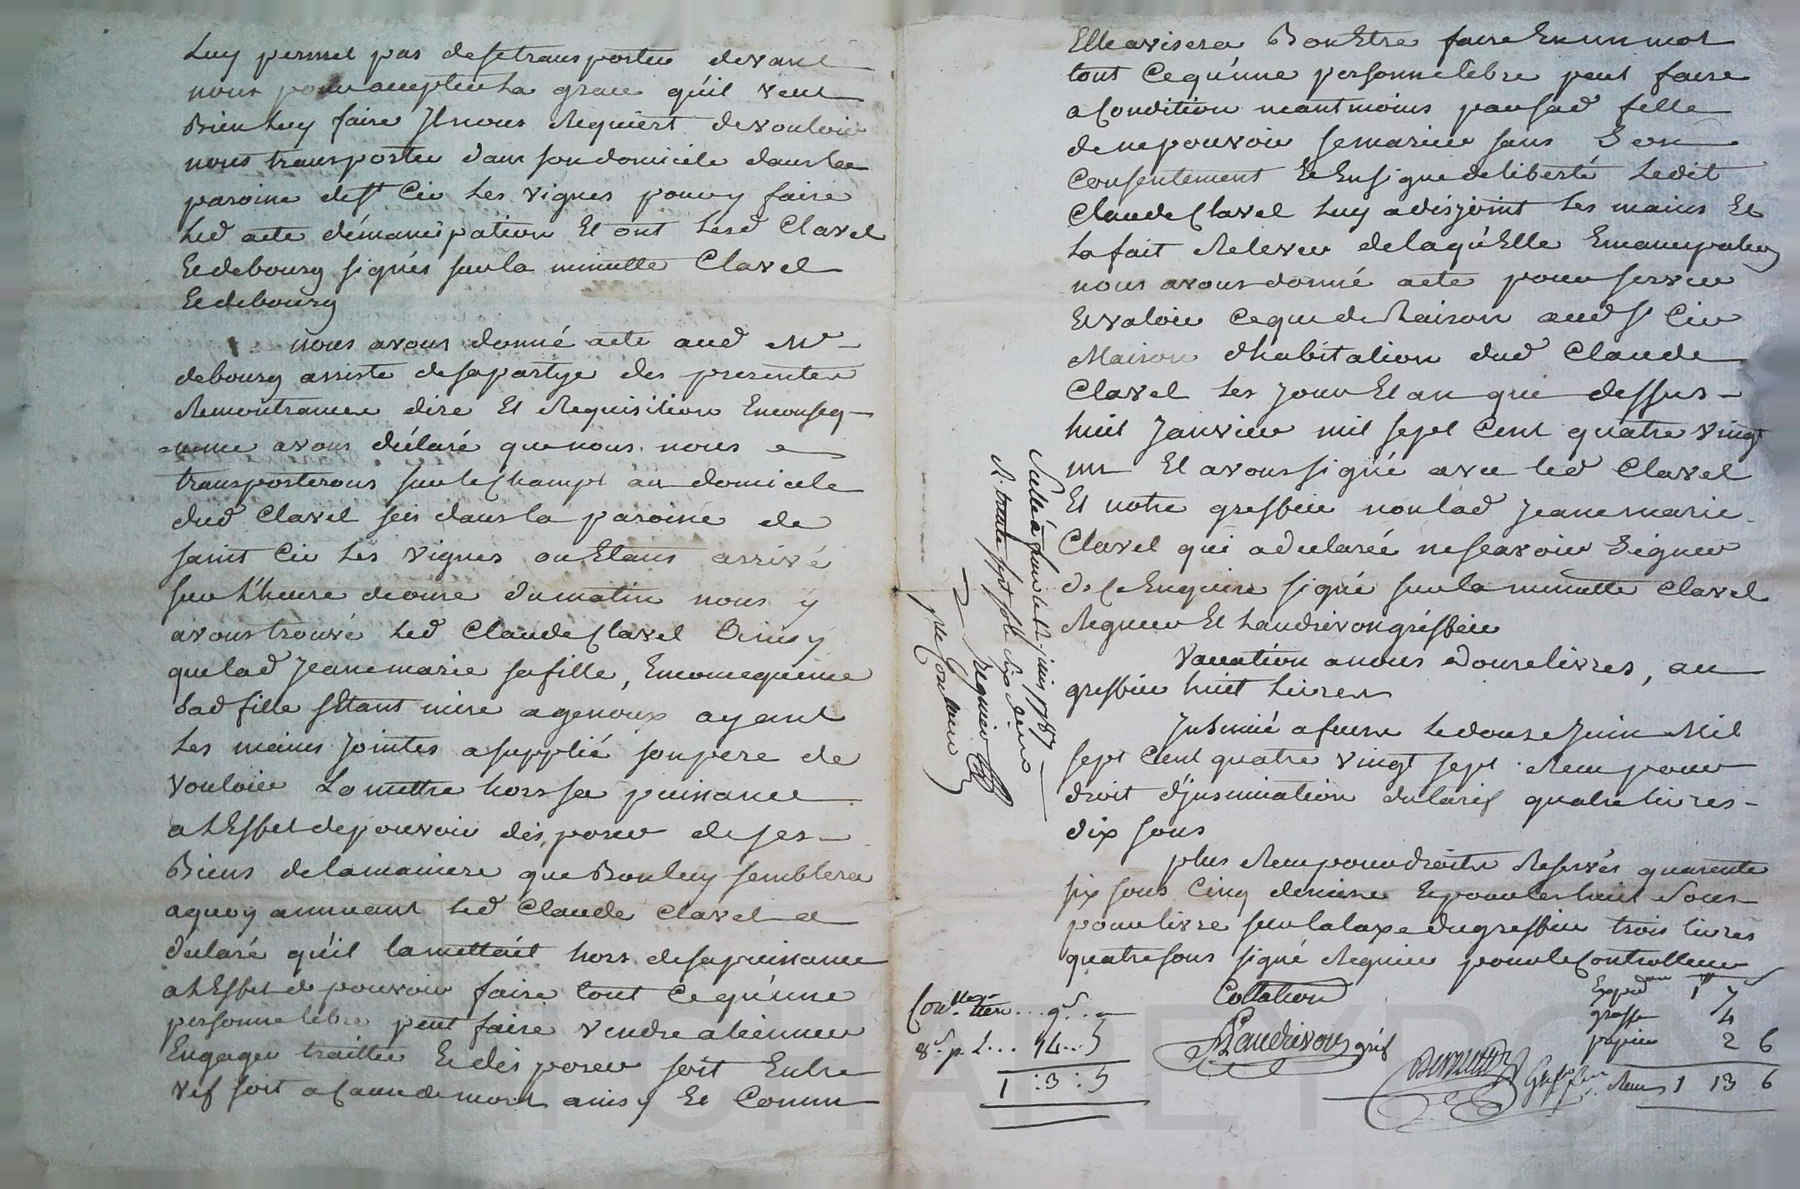 Luy permet pas de se transporter devant
nous pour acuplir La grace qu'il veut
Bien Luy faire Il nous Requiert de vouloir
nous transporter dans son domicile dans la
paroise de St Cir Les vignes pour y faire
Led acte démancipation Et ont Lesd Clavel
Et debourg signés sur la minutte Clavel
Et debourg
nous avons donné acte aud Me
debourg assisté de sa partye des presentes
Remontrances dire Et Requisition En conseq-
=uence avons déclaré que nous nous
transporterons sur le Champt au domicile
dud Clavel sis dans la paroise de
saint Cir Les vignes ou Etant arrivé
sur L'heure de onze du matin nous y
avons trouvé Led Claude Clavel Ainsy
que lad Jeanemarie sa fille, En consequence
Lad fille s'Etant mise a genoux ayant
Les mains Jointes a supplié son pere de
vouloir La mettre hors sa puissance
a L'Effet de pouvoir disposer de ses
Biens de la maniere que Bon luy semblera
a quoy annuant Led Claude Clavel a
declaré qu'il la mettait hors de sa puissance
a L'Effet de pouvoir faire tout Ce qu'une
personne libre peut faire vendre alienner
Engager traitter Et disposer soit Entre
vif soit a Cause de mort ainsy Et Comm
Elle avisera Bon Etre faire En un mot
tout Ce qu'une personne libre peut faire
a Condition neantmoins par sad fille
de ne pouvoir se marier sans son
Consentement Et En signe de liberté Ledit
Claude Clavel Luy a disjoint Les mains Et
La fait Relever de laquelle Emancipation
nous avons donné acte pour servir
Et valoir Ce que de Raison aud St Cir
Maison d'habitation dud Claude
Clavel Les Jour Et an que dessus
huit Janvier mil sept Cent quatre vingt
un Et avons signé avec led Clavel
Et notre greffier non lad Jeanemarie
Clavel qui a declarée ne scavoir signer
de Ce Enquise signé sur la minutte Clavel
Regnier Et Landrivon greffier
Vacation a nous douze livres, au
greffier huit Livres
Insinué a feurs Le douze Juin Mil
sept Cent quatre vingt sept Reçu pour
droit d'Insinuation du tarif quatre livres
dix sous
plus Reçu pour droits Reservés quarente
six sous Cinq deniers Et pour les huit sous
pour livre sur la taxe du greffier trois livres
quatre sous signé Regnier pour le Controlleur
Collation
Landrivon gref
8 s. p. L... 14..5
1 : 3 : 5
Exped on 1 7
grosse 4
papier 2 6
Reçu 1 13 6
Scellé a feurs le 12 juin 1787
R. trente sept sols six deniers
Regnier